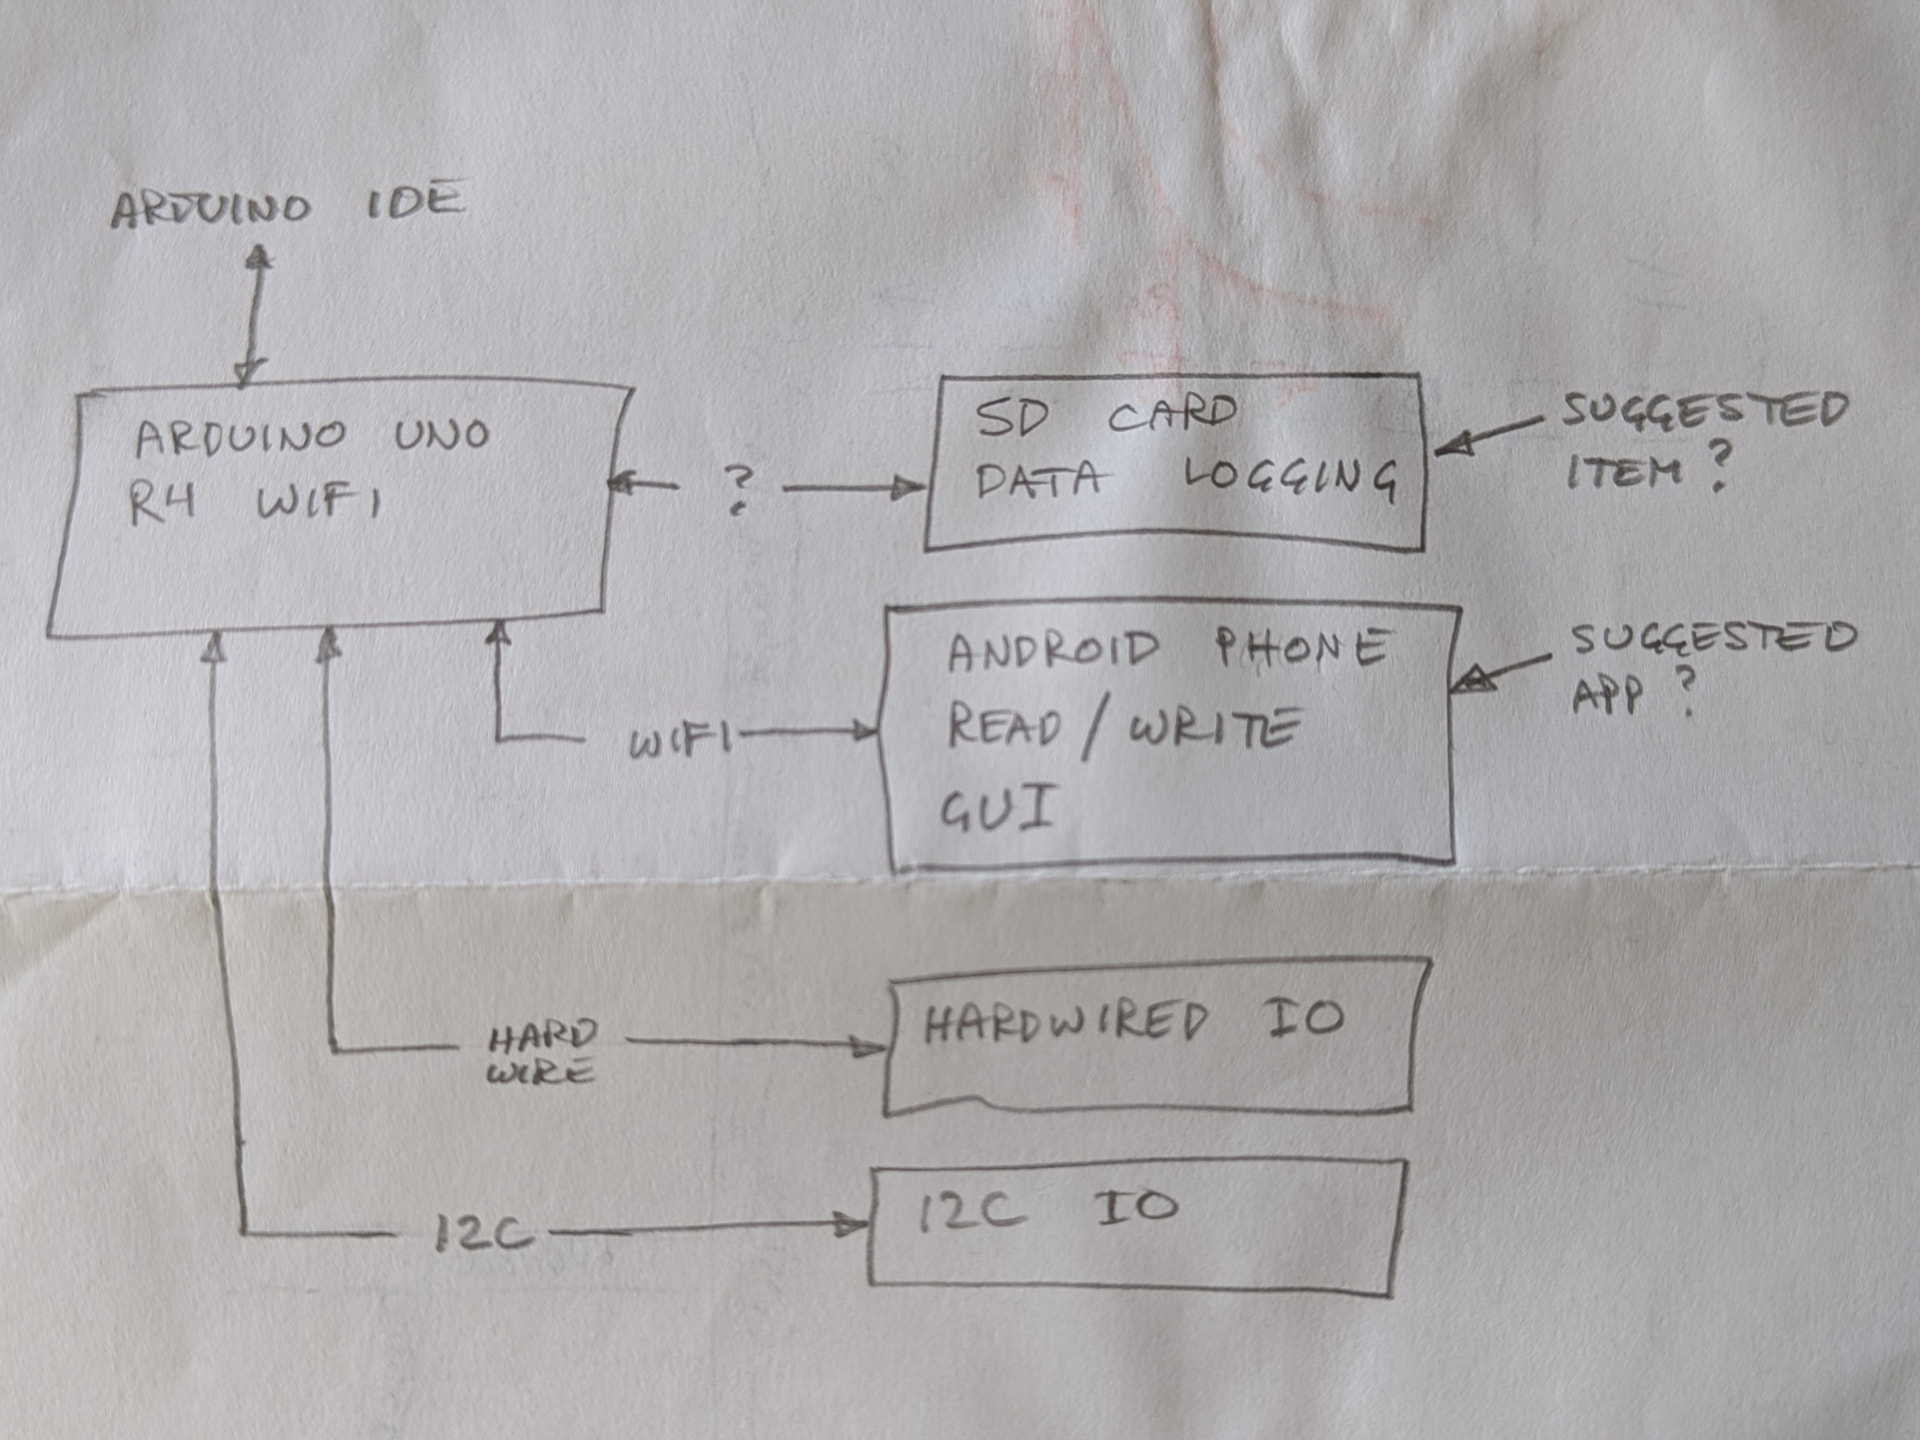 ARDUINO IDE
ARDUINO UNO
R4 WIFI
?
SD CARD
DATA LOGGING
SUGGESTED
ITEM ?
WIFI
ANDROID PHONE
READ / WRITE
GUI
SUGGESTED
APP ?
HARD
WIRE
HARDWIRED IO
I2C
I2C IO